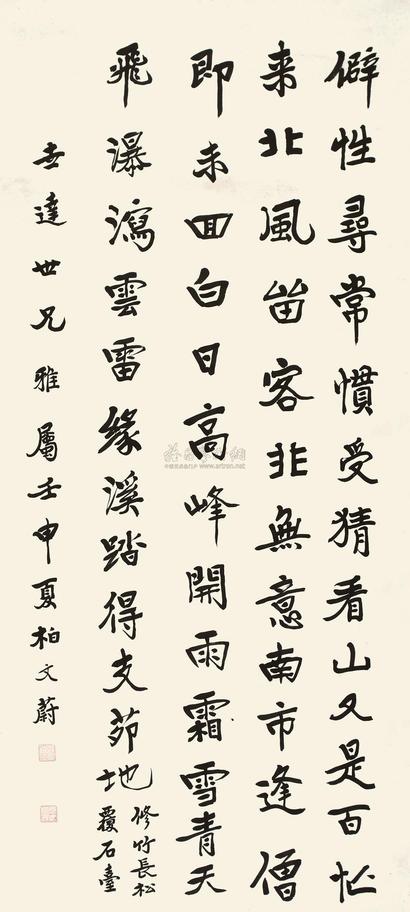 僻性尋常慣受猜看山又是百忙
来北風畱客非無意南市逢僧
即未回白日高峰開雨霜雪青天
飛瀑瀉雲雷緣溪踏得支茆地
修竹長松
覆石臺
達世兄雅屬壬申夏柏文蔚
www.artron.net